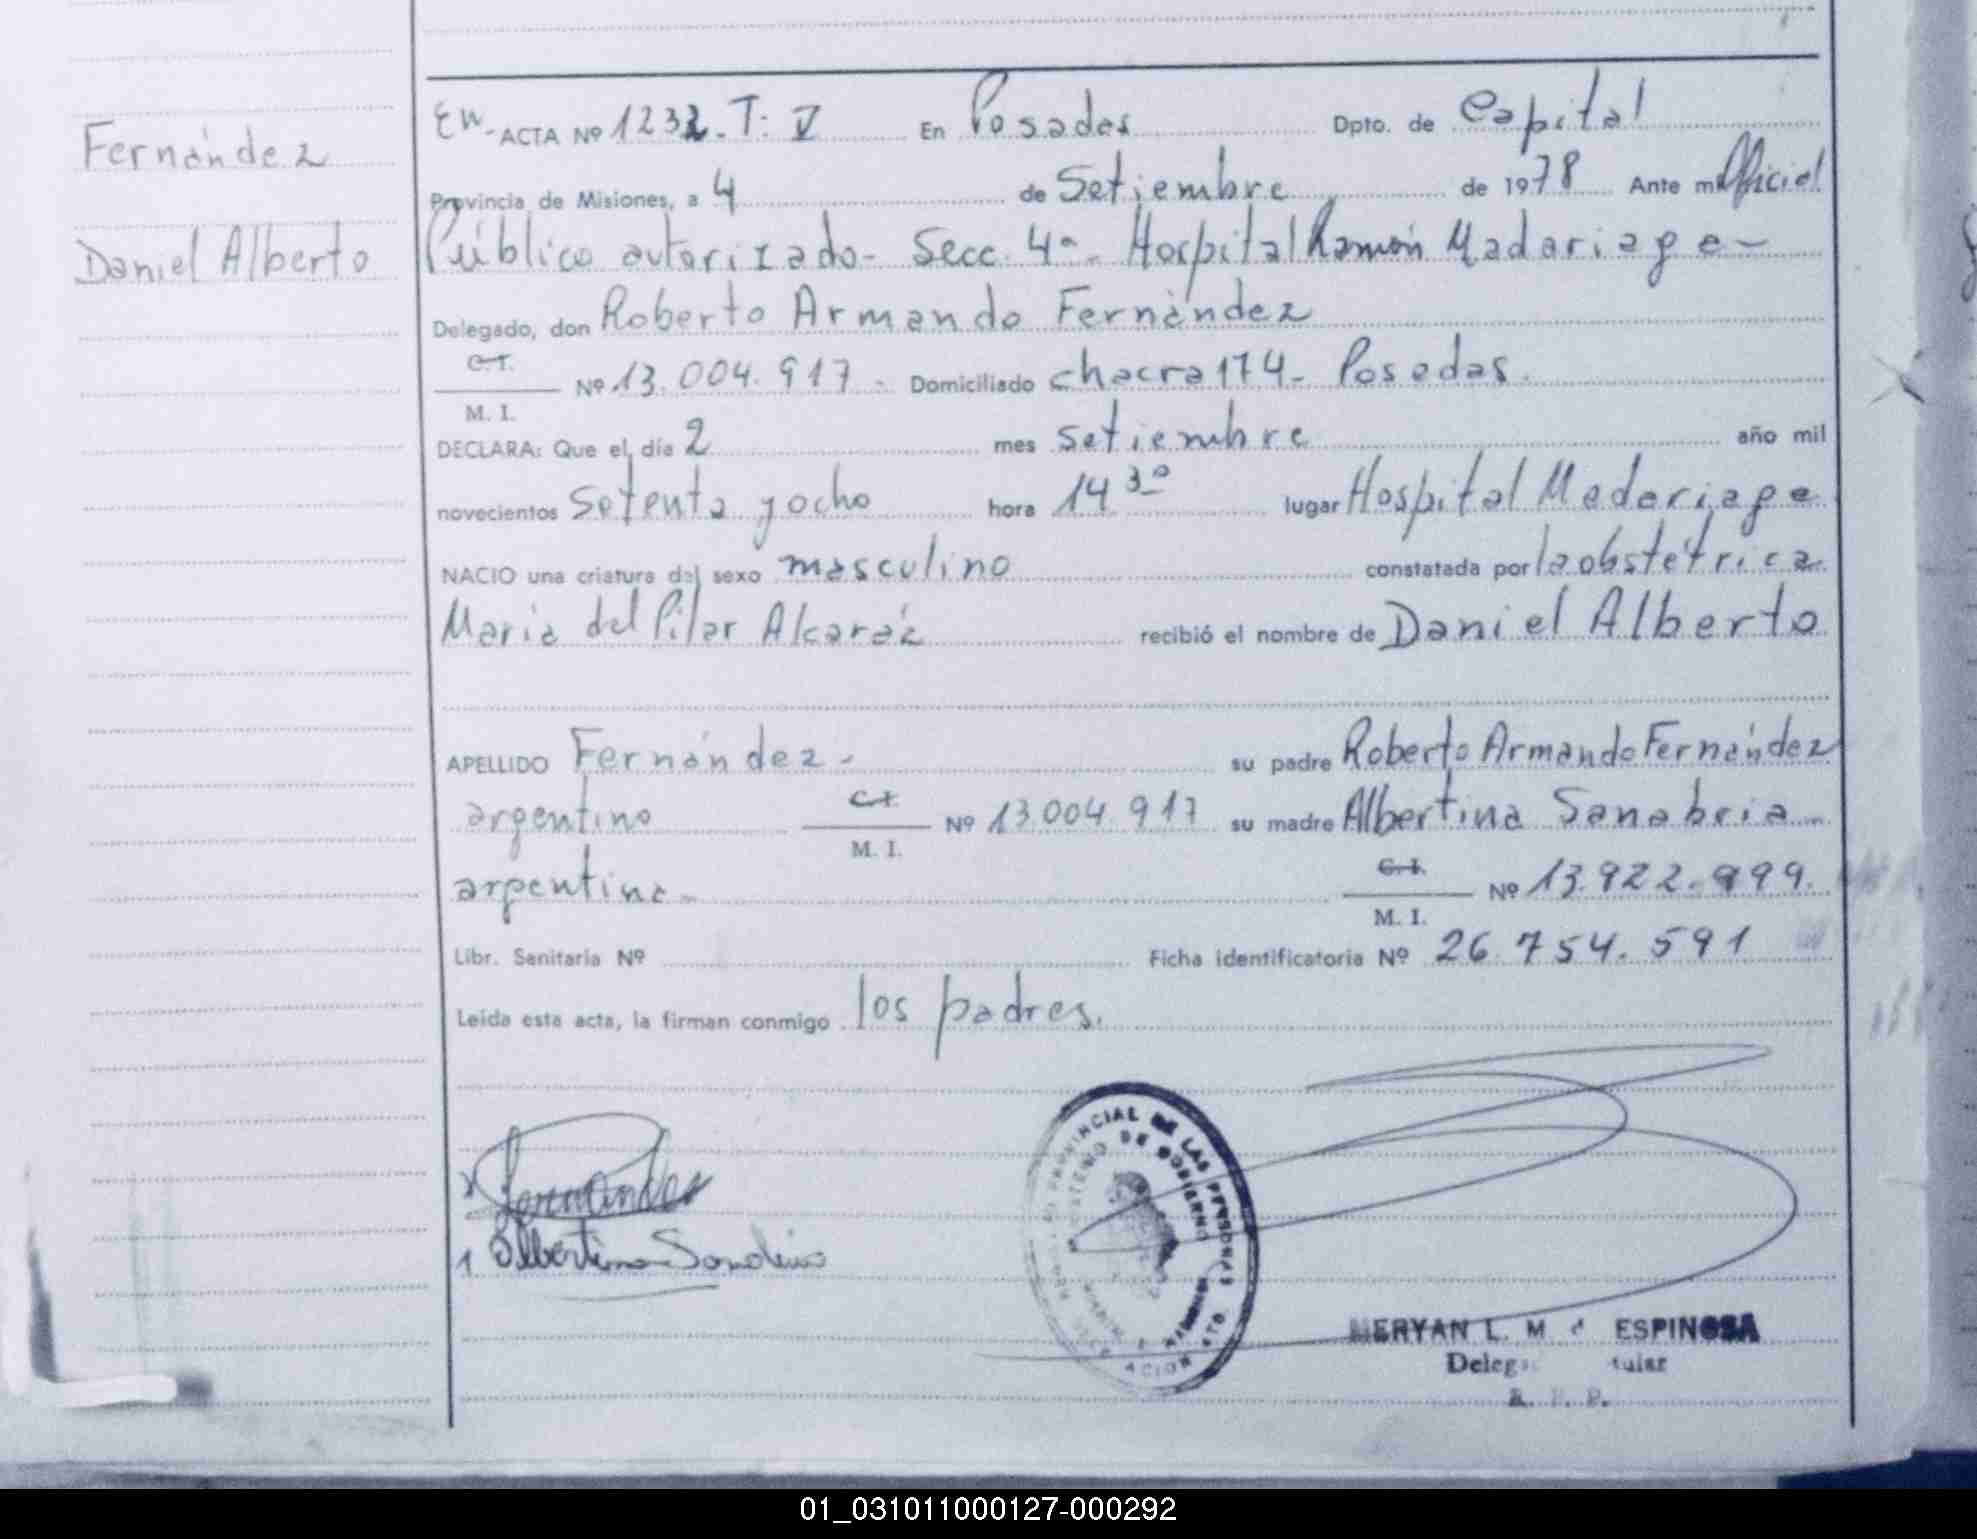 Fernández
Daniel Alberto
En- ACTA Nº 1232. T. V En Posadas Dpto. de Capital
Provincia de Misiones, a 4 de Setiembre de 1978 Ante mí Oficial
Público autorizado- Secc. 4ª- Hospital Ramón Madariaga-
Delegado, don Roberto Armando Fernández
C.I.
M. I.
Nº 13.004.917- Domiciliado chacra 174- Posadas.
DECLARA: Que el día 2 mes setiembre año mil
novecientos setenta y ocho hora 14 30 lugar Hospital Madariaga
NACIO una criatura del sexo masculino constatada por la obstétrica
María del Pilar Alcaráz recibió el nombre de Daniel Alberto
APELLIDO Fernández- su padre Roberto Armando Fernández
argentino C.I. M. I. Nº 13.004.917 su madre Albertina Sanabria
argentina- C.I. M. I. Nº 13.922.999.
Libr. Sanitaria Nº Ficha identificatoria Nº 26.754.591
Leída esta acta, la firman conmigo los padres.
Fernandes
Albertina
PROVINCIAL DE LAS PERSONAS
DE GOBIERNO
MERYAN L. M ESPINOSA
R. P. P.
01_031011000127-000292